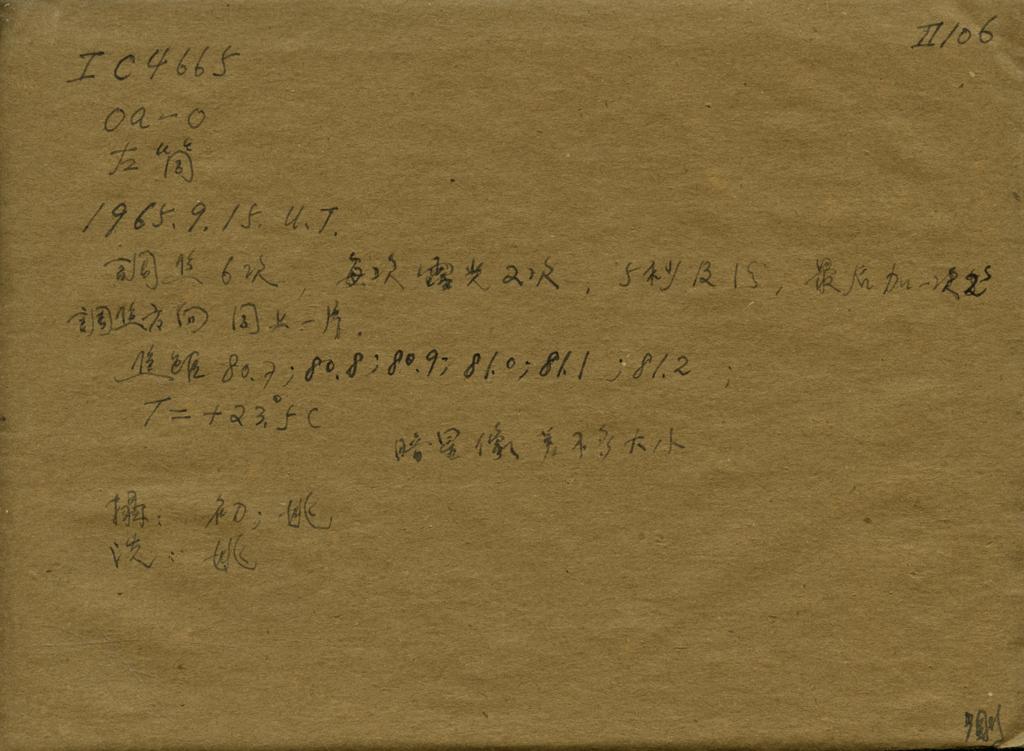 II/06
IC4665
Oa-O
左筒
1965.9.15. U.T.
調焦6次，每次露光2次，5秒及1S，最后加一次
調焦方向 同上一片.
焦距 80.7; 80.8; 80.9; 81.0; 81.1; 81.2;
T = +23.°5C
暗星像差不多大小
攝: 初; 姚
洗: 姚